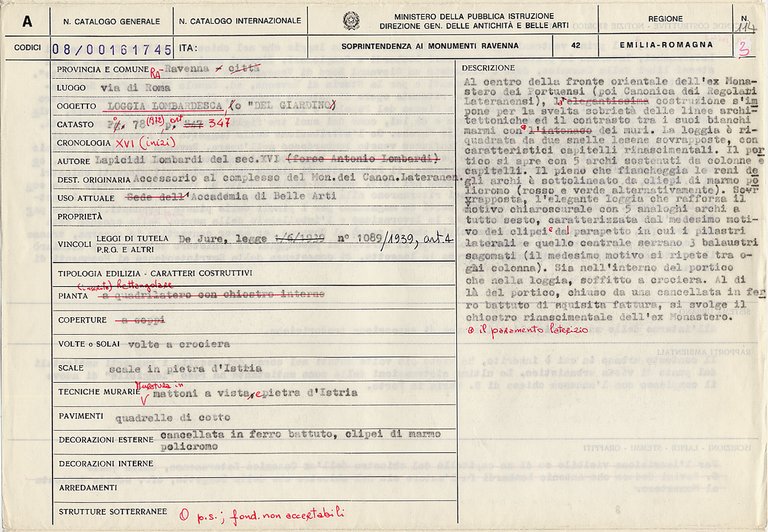 A
N. CATALOGO GENERALE
N. CATALOGO INTERNAZIONALE
MINISTERO DELLA PUBBLICA ISTRUZIONE
DIREZIONE GEN. DELLE ANTICHITÀ E BELLE ARTI
REGIONE
N.
114
CODICI
08/00161745
ITA:
SOPRINTENDENZA AI MONUMENTI RAVENNA
42
EMILIA-ROMAGNA
3
PROVINCIA E COMUNE: RA-Ravenna - città
LUOGO via di Roma
OGGETTO LOGGIA LOMBARDESCA (o "DEL GIARDINO")
CATASTO F° 78 (1972) part 347 347
CRONOLOGIA XVI (inizi)
AUTORE Lapicidi Lombardi del sec.XVI (forse Antonio Lombardi)
DEST. ORIGINARIA Accessorio al complesso del Mon.dei Canon.Lateranen.
USO ATTUALE Sede dell'Accademia di Belle Arti
PROPRIETÀ
VINCOLI LEGGI DI TUTELA De Jure, legge 1/6/1939 n° 1089/1939, art.4
P.R.G. E ALTRI
TIPOLOGIA EDILIZIA - CARATTERI COSTRUTTIVI
(inserito) Rettangolare
PIANTA a quadrilatero con chiostro interno
COPERTURE a coppi
VOLTE o SOLAI volte a crociera
SCALE scale in pietra d'Istria
TECNICHE MURARIE Muratura in mattoni a vista, e pietra d'Istria
PAVIMENTI quadrelle di cotto
DECORAZIONI ESTERNE cancellata in ferro battuto, clipei di marmo
policromo
DECORAZIONI INTERNE
ARREDAMENTI
STRUTTURE SOTTERRANEE p.s.; fond. non accertabili
DESCRIZIONE
Al centro della fronte orientale dell'ex Mona-
stero dei Portuensi (poi Canonica dei Regolari
Lateranensi), l'elegantissima costruzione s'im
pone per la svelta sobrietà delle linee archi-
tettoniche ed il contrasto tra i suoi bianchi
marmi con l'intonaco dei muri. La loggia è ri-
quadrata da due snelle lesene sovrapposte, con
caratteristici capitelli rinascimentali. Il por
tico si apre con 5 archi sostenuti da colonne e
capitelli. Il pieno che fiancheggia le reni de
gli archi è sottolineato da clipei di marmo po
licromo (rosso e verde alternativamente). Sovr
rapposta, l'elegante loggia che rafforza il
motivo chiaroscurale con 5 analoghi archi a
tutto sesto, caratterizzata dal medesimo moti-
vo dei clipei e dal parapetto in cui i pilastri
laterali e quello centrale serrano 3 balaustri
sagomati (il medesimo motivo si ripete tra o-
gni colonna). Sia nell'interno del portico
che nella loggia, soffitto a crociera. Al di
là del portico, chiuso da una cancellata in fer
ro battuto di squisita fattura, si svolge il
chiostro rinascimentale dell'ex Monastero.
il paramento laterizio